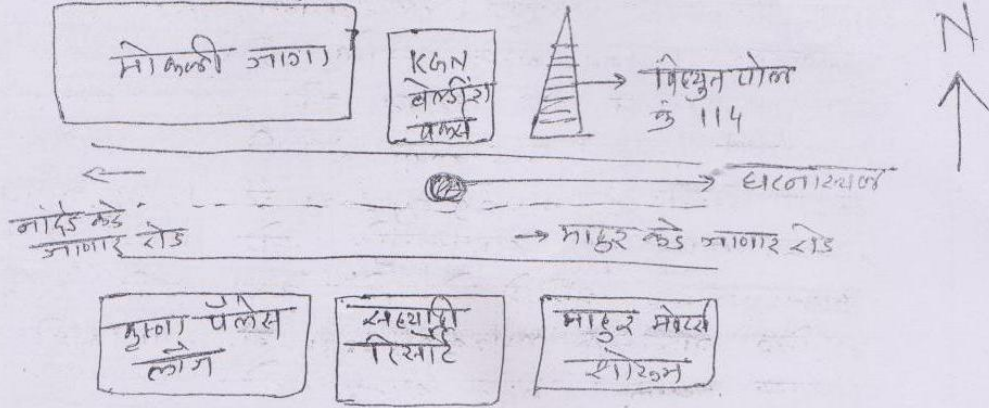 मोकळी जागा
KGN
वेल्डींग
वर्क्स
विद्युत पोल
क्रं 114
N
घटनास्थळ
नांदेड कडे
जाणार रोड
माहुर कडे जाणार रोड
कृष्णा पॅलेस
लॉज
सह्याद्री
रिसोर्ट
माहुर मोटर्स
शोरूम